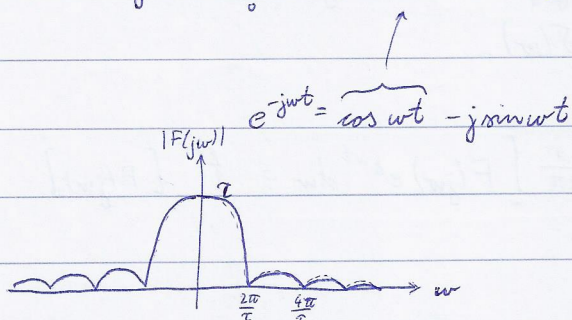 e^{-jωt} = cos ωt - j sin ωt
|F(jω)|
τ
ω
2π/τ 4π/τ